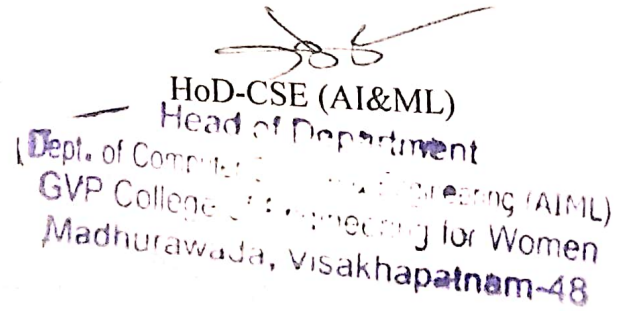 HoD-CSE (AI&ML)
Head of Department
Dept. of Computer Engineering (AIML)
GVP College of Engineering for Women
Madhurawada, Visakhapatnam-48